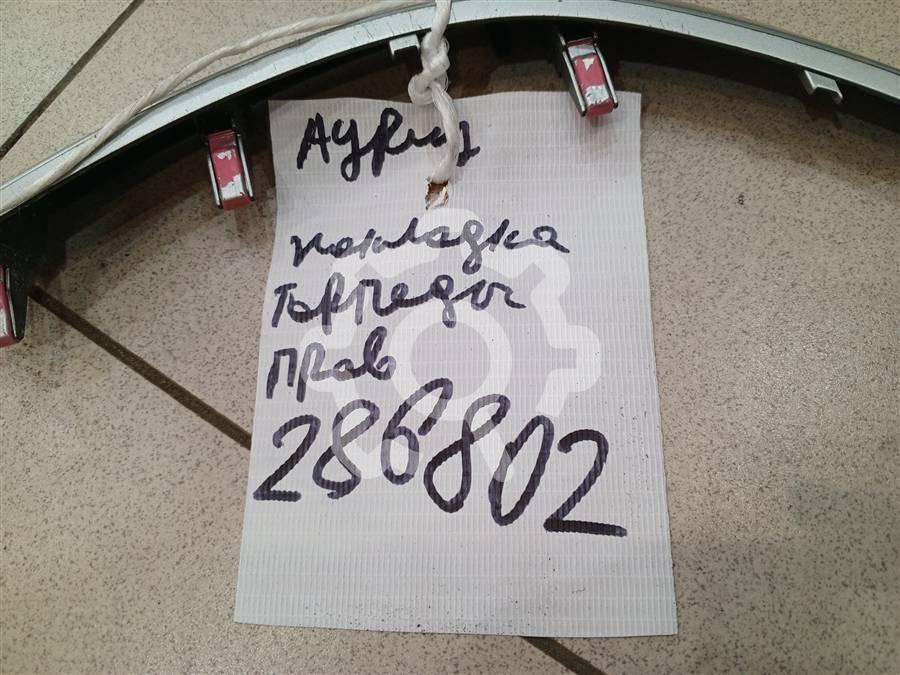 Аурис
накладка
торпеды
прав
286802